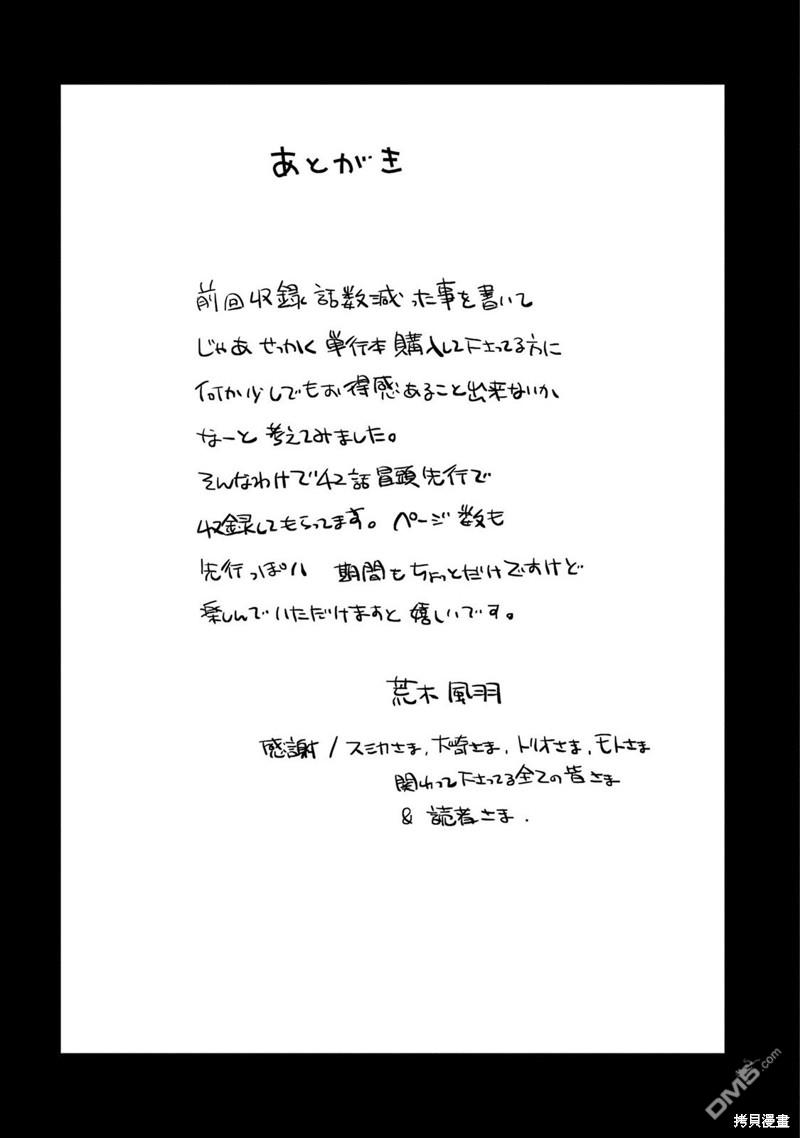 あとがき
前回収録話数減った事を書いて
じゃあせっかく単行本購入して下さってる方に
何か少しでもお得感あること出来ないか
なーと考えてみました。
そんなわけで42話冒頭先行で
収録してもらってます。ページ数も
先行っぽい 期間もちょっとだけですけど
楽しんでいただけますと嬉しいです。
荒木風羽
感謝/スミカさま,大崎さま,トリオさま,モトさま
関わって下さってる全ての皆さま
& 読者さま.
DM5.com
拷贝漫畫